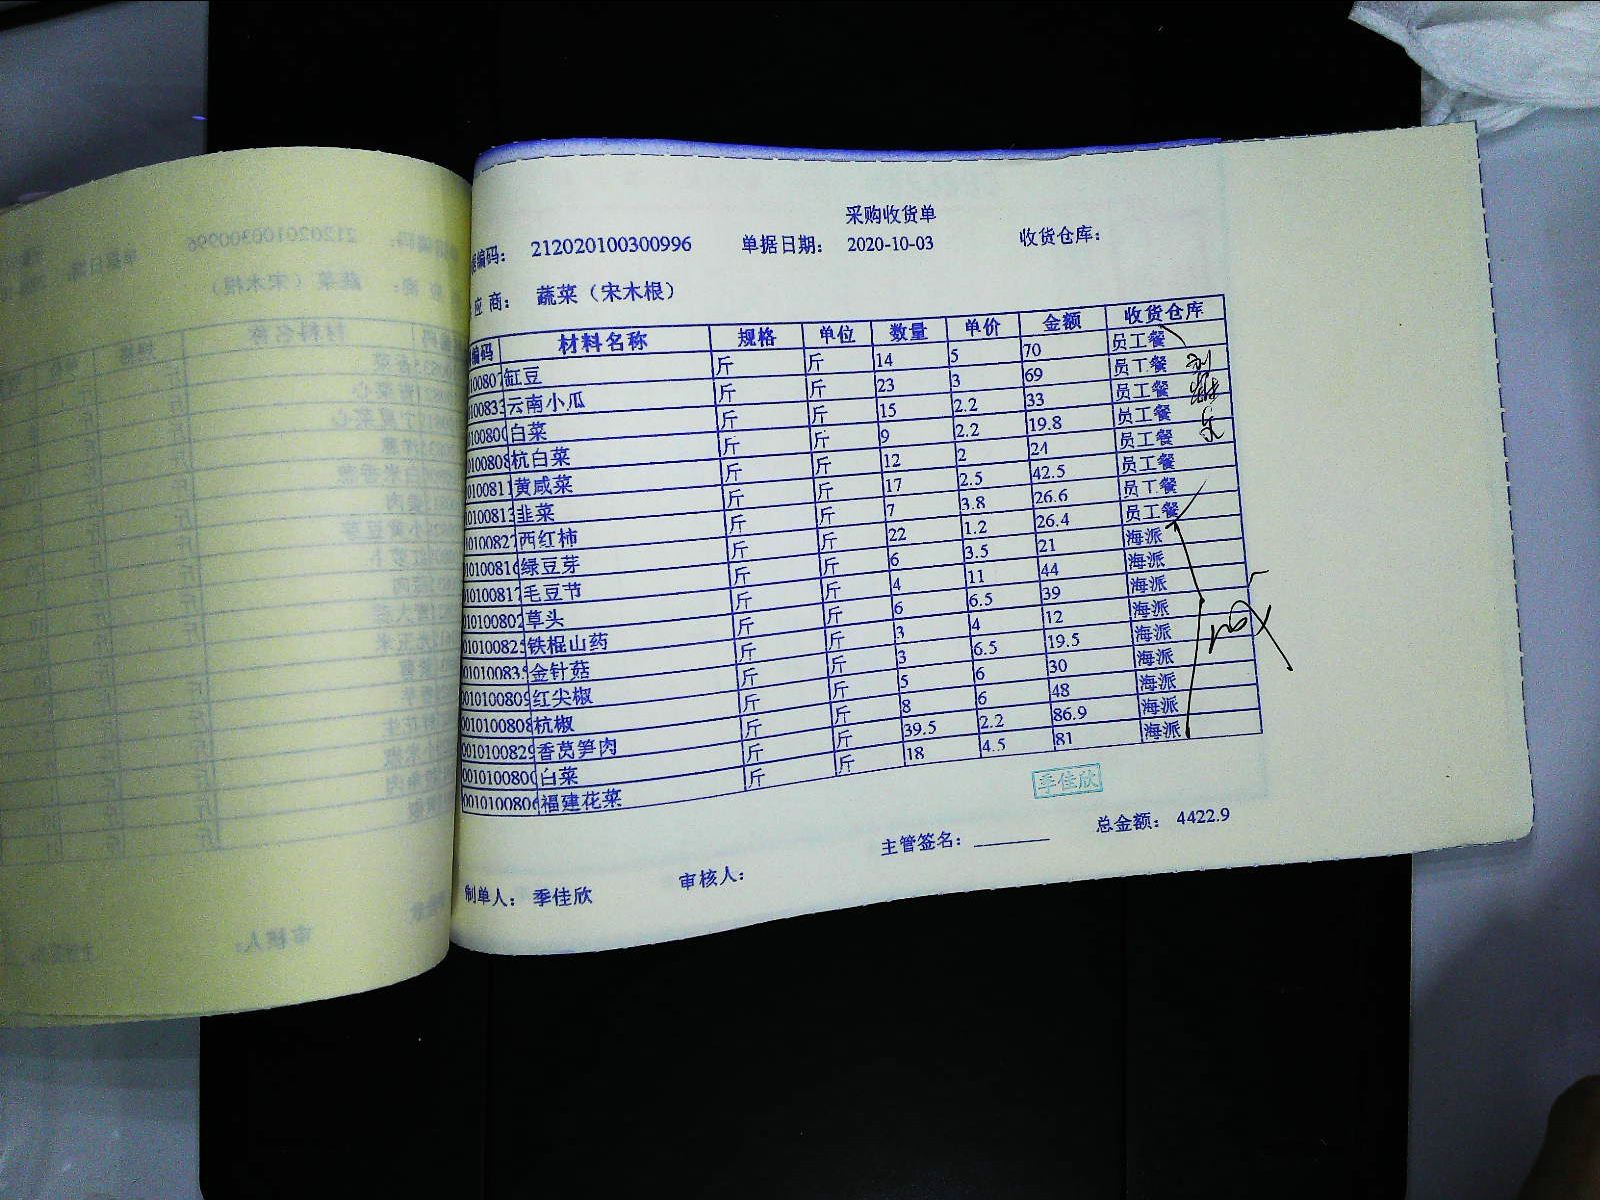 采购收货单
编码： 212020100300996 单据日期： 2020-10-03 收货仓库：
应 商： 蔬菜（宋木根）
编码 材料名称 规格 单位 数量 单价 金额 收货仓库
100807 缸豆 斤 斤 14 5 70 员工餐
0100833 云南小瓜 斤 斤 23 3 69 员工餐
010080 白菜 斤 斤 15 2.2 33 员工餐
0100808 杭白菜 斤 斤 9 2.2 19.8 员工餐
0100811 黄咸菜 斤 斤 12 2 24 员工餐
0100813 韭菜 斤 斤 17 2.5 42.5 员工餐
0100827 西红柿 斤 斤 7 3.8 26.6 员工餐
0100816 绿豆芽 斤 斤 22 1.2 26.4 员工餐
0100817 毛豆节 斤 斤 6 3.5 21 海派
10100802 草头 斤 斤 4 11 44 海派
10100825 铁棍山药 斤 斤 6 6.5 39 海派
0010100835 金针菇 斤 斤 3 4 12 海派
0010100809 红尖椒 斤 斤 3 6.5 19.5 海派
0010100808 杭椒 斤 斤 5 6 30 海派
0010100829 香莴笋肉 斤 斤 8 6 48 海派
001010080 白菜 斤 斤 39.5 2.2 86.9 海派
0010100806 福建花菜 斤 斤 18 4.5 81 海派
季佳欣
制单人： 季佳欣 审核人： 主管签名： 总金额： 4422.9